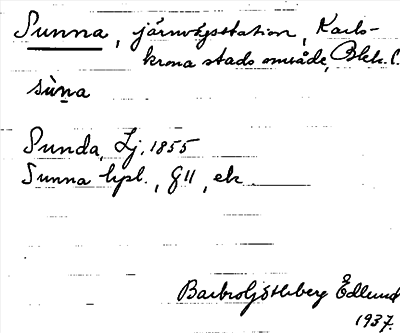 Sunna, järnvägsstation, Karls-
krona stads område, Blek. l.
sùna
Sunda, Lj, 1855
Sunna hpl., GII, ek
Barbro Göthberg Edlund
1937.